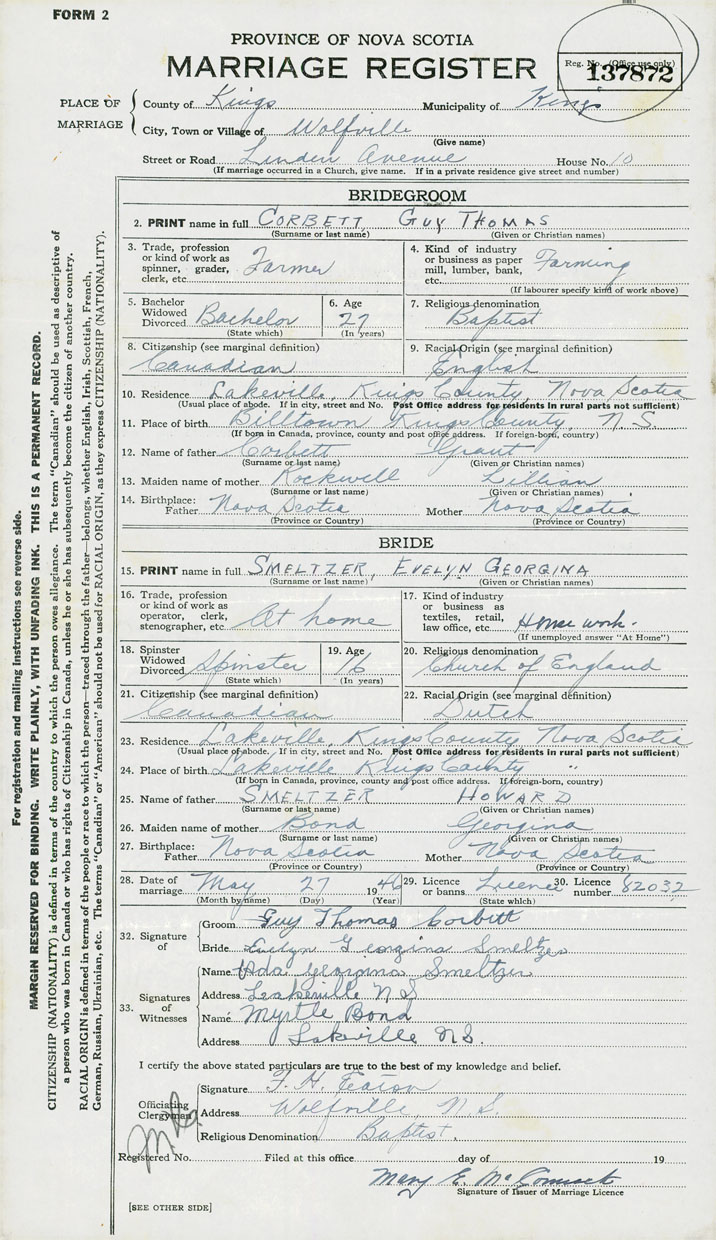 FORM 2
PROVINCE OF NOVA SCOTIA
MARRIAGE REGISTER
Reg. No. (Office use only)
137872
PLACE OF MARRIAGE
County of Kings Municipality of Kings
City, Town or Village of Wolfville
(Give name)
Street or Road Linden Avenue House No. 10
(If marriage occurred in a Church, give name. If in a private residence give street and number)
BRIDEGROOM
2. PRINT name in full CORBETT, GUY THOMAS
(Surname or last name) (Given or Christian names)
3. Trade, profession or kind of work as spinner, grader, clerk, etc. Farmer
4. Kind of industry or business as paper mill, lumber, bank, etc. Farming
(If labourer specify kind of work above)
5. Bachelor Widowed Divorced Bachelor
(State which)
6. Age 27
(In years)
7. Religious denomination
Baptist
8. Citizenship (see marginal definition)
Canadian
9. Racial Origin (see marginal definition)
English
10. Residence Lakeville, Kings County, Nova Scotia
(Usual place of abode. If in city, street and No. Post Office address for residents in rural parts not sufficient)
11. Place of birth Billtown Kings County, N.S.
(If born in Canada, province, county and post office address. If foreign-born, country)
12. Name of father Corbett Grant
(Surname or last name) (Given or Christian names)
13. Maiden name of mother Rockwell Lillian
(Surname or last name) (Given or Christian names)
14. Birthplace: Father Nova Scotia Mother Nova Scotia
(Province or Country) (Province or Country)
BRIDE
15. PRINT name in full SMELTZER, EVELYN GEORGINA
(Surname or last name) (Given or Christian names)
16. Trade, profession or kind of work as operator, clerk, stenographer, etc. At home
17. Kind of industry or business as textiles, retail, law office, etc. House work.
(If unemployed answer "At Home")
18. Spinster Widowed Divorced Spinster
(State which)
19. Age 16
(In years)
20. Religious denomination
Church of England
21. Citizenship (see marginal definition)
Canadian
22. Racial Origin (see marginal definition)
Dutch
23. Residence Lakeville, Kings County Nova Scotia
(Usual place of abode. If in city, street and No. Post Office address for residents in rural parts not sufficient)
24. Place of birth Lakeville Kings County "
(If born in Canada, province, county and post office address. If foreign-born, country)
25. Name of father SMELTZER HOWARD
(Surname or last name) (Given or Christian names)
26. Maiden name of mother Bond Georgina
(Surname or last name) (Given or Christian names)
27. Birthplace: Father Nova Scotia Mother Nova Scotia
(Province or Country) (Province or Country)
28. Date of marriage May 27 1946
(Month by name) (Day) (Year)
29. Licence or banns Licence
(State which)
30. Licence number 82032
32. Signature of
Groom Guy Thomas Corbett
Bride Evelyn Georgina Smeltzer
33. Signatures of Witnesses
Name Ada Georgina Smeltzer
Address Lakeville N S
Name Myrtle Bond
Address Lakeville NS.
I certify the above stated particulars are true to the best of my knowledge and belief.
Officiating Clergyman
Signature F. H. Eaton
Address Wolfville, N.S.
Religious Denomination Baptist.
Registered No. Filed at this office day of 19
Mary E. McCormack
Signature of Issuer of Marriage Licence
[SEE OTHER SIDE]
For registration and mailing instructions see reverse side.
MARGIN RESERVED FOR BINDING. WRITE PLAINLY, WITH UNFADING INK. THIS IS A PERMANENT RECORD.
CITIZENSHIP (NATIONALITY) is defined in terms of the country to which the person owes allegiance. The term "Canadian" should be used as descriptive of
a person who was born in Canada or who has rights of Citizenship in Canada, unless he or she has subsequently become the citizen of another country.
RACIAL ORIGIN is defined in terms of the people or race to which the person—traced through the father—belongs, whether English, Irish, Scottish, French,
German, Russian, Ukrainian, etc. The terms "Canadian" or "American" should not be used for RACIAL ORIGIN, as they express CITIZENSHIP (NATIONALITY).